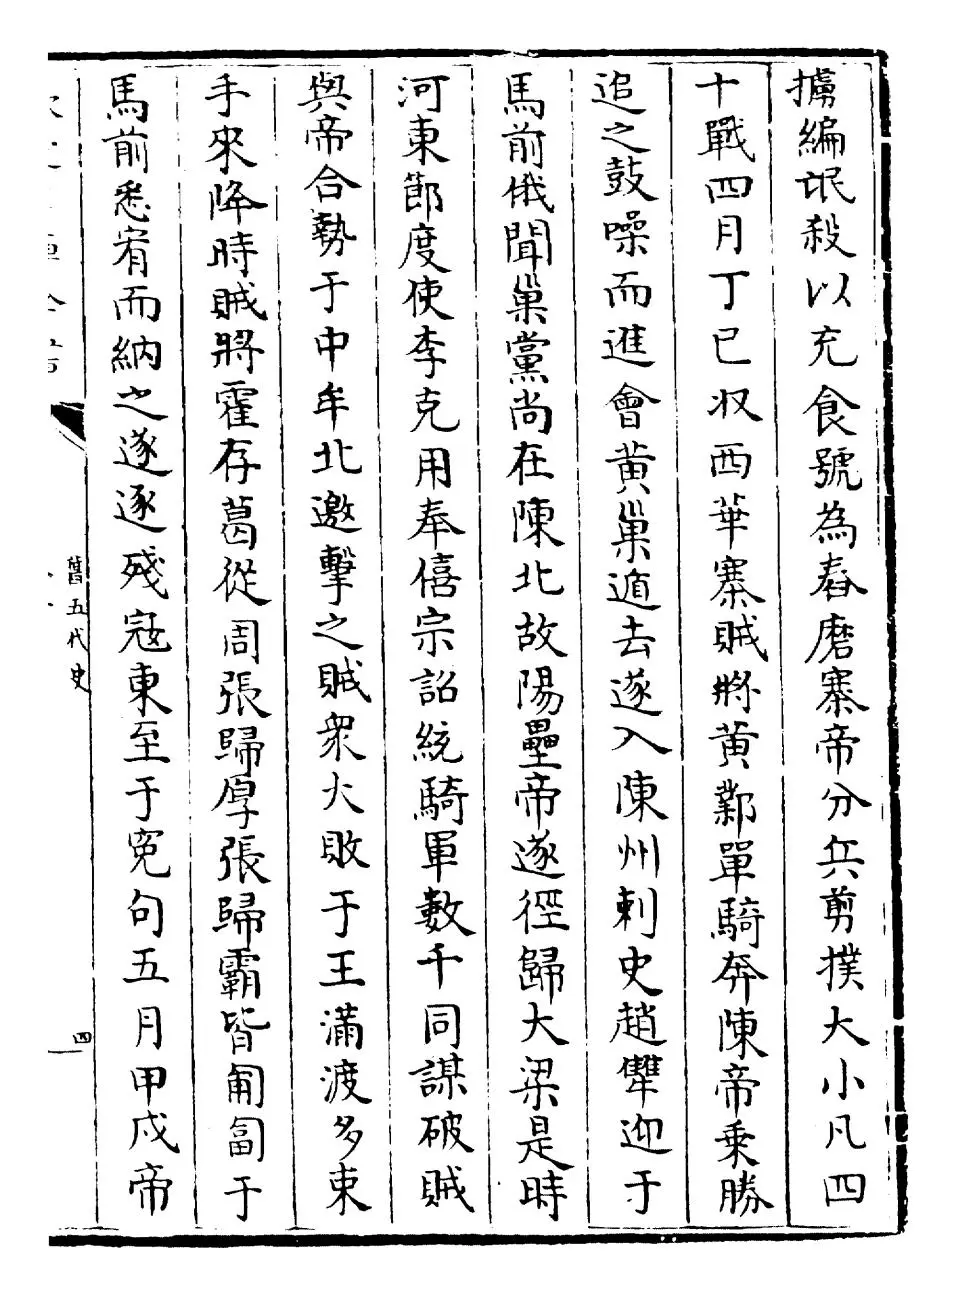 擄編氓殺以充食號為舂磨寨帝分兵剪撲大小凡四
十戰四月丁巳収西華寨賊將黄鄴單騎奔陳帝乗勝
追之鼓噪而進會黄巢遁去遂入陳州刺史趙犨迎于
馬前俄聞巢黨尚在陳北故陽壘帝遂徑歸大梁是時
河東節度使李克用奉僖宗詔統騎軍數千同謀破賊
與帝合勢于中牟北邀擊之賊衆大敗于王滿渡多束
手來降時賊將霍存葛從周張歸厚張歸霸皆匍匐于
馬前悉宥而納之遂逐殘寇東至于寃句五月甲戌帝
舊五代史
四